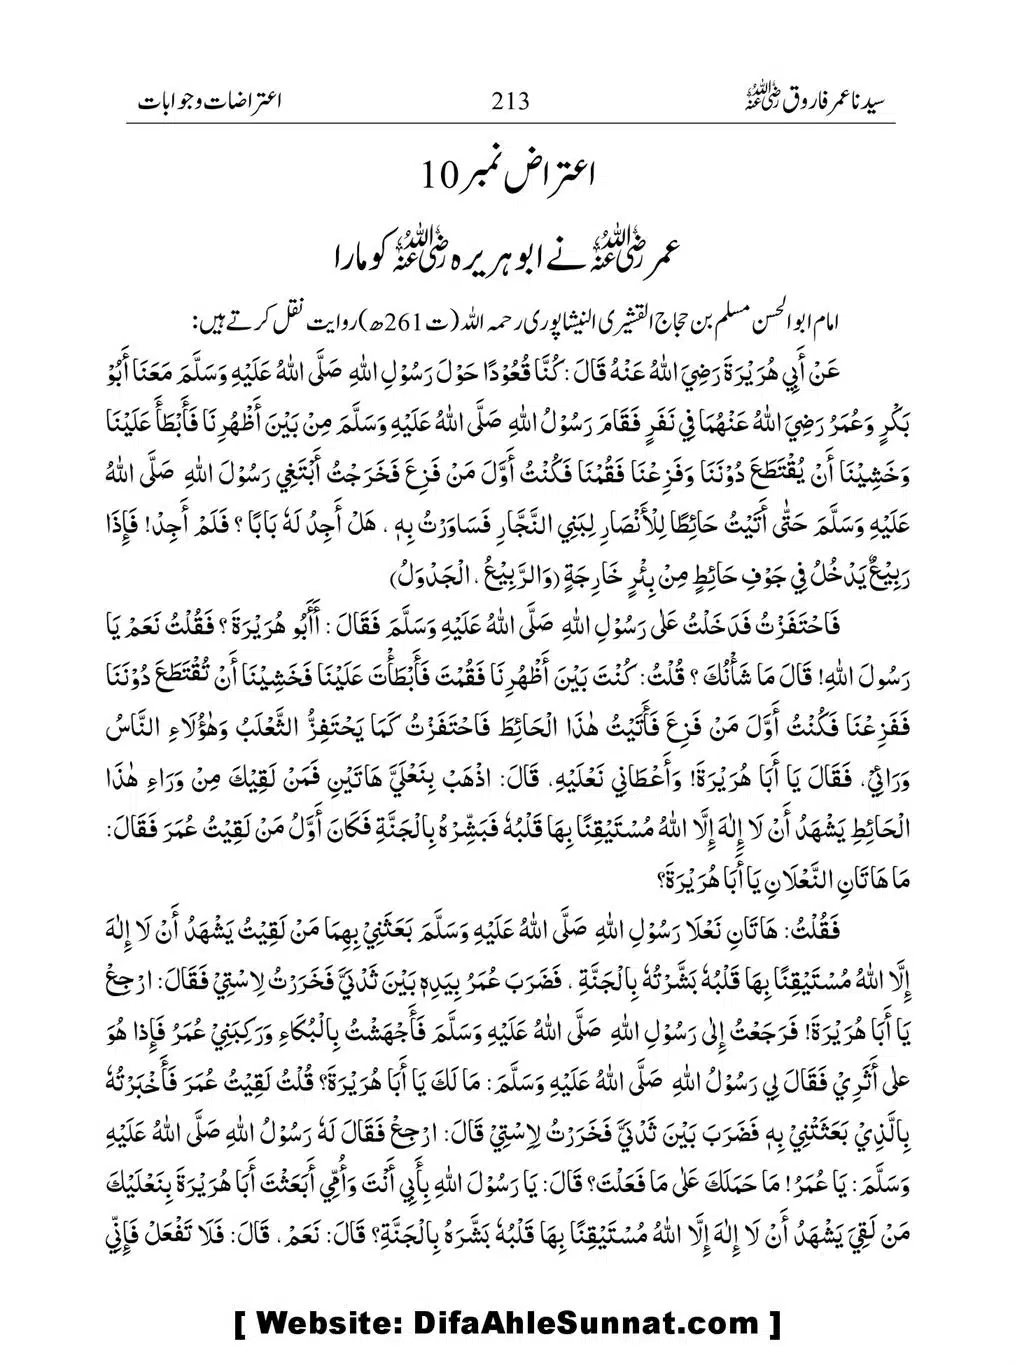 سیدنا عمر فاروق رضی اللہ عنہ 213 اعتراضات و جوابات
اعتراض نمبر 10
عمر رضی اللہ عنہ نے ابو ہریرہ رضی اللہ عنہ کو مارا
امام ابو الحسن مسلم بن حجاج القشیری النیشاپوری رحمہ اللہ (ت 261ھ) روایت نقل کرتے ہیں:
عَنْ أَبِي هُرَيْرَةَ رَضِيَ اللهُ عَنْهُ قَالَ: كُنَّا قُعُوْدًا حَوْلَ رَسُوْلِ اللهِ صَلَّى اللهُ عَلَيْهِ وَسَلَّمَ مَعَنَا أَبُوْ
بَكْرٍ وَعُمَرُ رَضِيَ اللهُ عَنْهُمَا فِي نَفَرٍ فَقَامَ رَسُوْلُ اللهِ صَلَّى اللهُ عَلَيْهِ وَسَلَّمَ مِنْ بَيْنَ أَظْهُرِنَا فَأَبْطَأَ عَلَيْنَا
وَخَشِيْنَا أَنْ يُقْتَطَعَ دُوْنَنَا وَفَزِعْنَا فَقُمْنَا فَكُنْتُ أَوَّلَ مَنْ فَزِعَ فَخَرَجْتُ أَبْتَغِي رَسُوْلَ اللهِ صَلَّى اللهُ
عَلَيْهِ وَسَلَّمَ حَتّٰى أَتَيْتُ حَائِطًا لِلْأَنْصَارِ لِبَنِي النَّجَّارِ فَسَاوَرْتُ بِهٖ، هَلْ أَجِدُ لَهٗ بَابًا؟ فَلَمْ أَجِدْ! فَإِذَا
رَبِيْعٌ يَدْخُلُ فِي جَوْفِ حَائِطٍ مِنْ بِئْرٍ خَارِجَةٍ (وَالرَّبِيْعُ، الْجَدْوَلُ)
فَاحْتَفَزْتُ فَدَخَلْتُ عَلٰى رَسُوْلِ اللهِ صَلَّى اللهُ عَلَيْهِ وَسَلَّمَ فَقَالَ: أَأَبُو هُرَيْرَةَ؟ فَقُلْتُ نَعَمْ يَا
رَسُولَ اللهِ! قَالَ مَا شَأْنُكَ؟ قُلْتُ: كُنْتَ بَيْنَ أَظْهُرِنَا فَقُمْتَ فَأَبْطَأْتَ عَلَيْنَا فَخَشِيْنَا أَنْ تُقْتَطَعَ دُوْنَنَا
فَفَزِعْنَا فَكُنْتُ أَوَّلَ مَنْ فَزِعَ فَأَتَيْتُ هٰذَا الْحَائِطَ فَاحْتَفَزْتُ كَمَا يَحْتَفِزُّ الثَّعْلَبُ وَهٰؤُلَاءِ النَّاسُ
وَرَائِيْ، فَقَالَ يَا أَبَا هُرَيْرَةَ! وَأَعْطَانِي نَعْلَيْهِ، قَالَ: اذْهَبْ بِنَعْلَيَّ هَاتَيْنِ فَمَنْ لَقِيْكَ مِنْ وَرَاءِ هٰذَا
الْحَائِطِ يَشْهَدُ أَنْ لَا إِلٰهَ إِلَّا اللهُ مُسْتَيْقِنًا بِهَا قَلْبُهٗ فَبَشِّرْهُ بِالْجَنَّةِ فَكَانَ أَوَّلُ مَنْ لَقِيْتُ عُمَرَ فَقَالَ:
مَا هَاتَانِ النَّعْلَانِ يَا أَبَا هُرَيْرَةَ؟
فَقُلْتُ: هَاتَانِ نَعْلَا رَسُوْلِ اللهِ صَلَّى اللهُ عَلَيْهِ وَسَلَّمَ بَعَثَنِيْ بِهِمَا مَنْ لَقِيْتُ يَشْهَدُ أَنْ لَا إِلٰهَ
إِلَّا اللهُ مُسْتَيْقِنًا بِهَا قَلْبُهٗ بَشَّرْتُهٗ بِالْجَنَّةِ، فَضَرَبَ عُمَرُ بِيَدِهٖ بَيْنَ ثَدْيَيَّ فَخَرَرْتُ لِاِسْتِيْ فَقَالَ: ارْجِعْ
يَا أَبَا هُرَيْرَةَ! فَرَجَعْتُ إِلٰى رَسُوْلِ اللهِ صَلَّى اللهُ عَلَيْهِ وَسَلَّمَ فَأَجْهَشْتُ بِالْبُكَاءِ وَرَكِبَنِيْ عُمَرُ فَإِذَا هُوَ
عَلٰى أَثَرِيْ فَقَالَ لِي رَسُوْلُ اللهِ صَلَّى اللهُ عَلَيْهِ وَسَلَّمَ: مَا لَكَ يَا أَبَا هُرَيْرَةَ؟ قُلْتُ لَقِيْتُ عُمَرَ فَأَخْبَرْتُهٗ
بِالَّذِيْ بَعَثْتَنِيْ بِهٖ فَضَرَبَ بَيْنَ ثَدْيَيَّ فَخَرَرْتُ لِاِسْتِيْ قَالَ: ارْجِعْ فَقَالَ لَهٗ رَسُوْلُ اللهِ صَلَّى اللهُ عَلَيْهِ
وَسَلَّمَ: يَا عُمَرُ! مَا حَمَلَكَ عَلٰى مَا فَعَلْتَ؟ قَالَ: يَا رَسُوْلَ اللهِ بِأَبِي أَنْتَ وَأُمِّي أَبَعَثْتَ أَبَا هُرَيْرَةَ بِنَعْلَيْكَ
مَنْ لَقِيَ يَشْهَدُ أَنْ لَا إِلٰهَ إِلَّا اللهُ مُسْتَيْقِنًا بِهَا قَلْبُهٗ بَشَّرَهٗ بِالْجَنَّةِ؟ قَالَ: نَعَمْ، قَالَ: فَلَا تَفْعَلْ فَإِنِّي
[ Website: DifaAhleSunnat.com ]